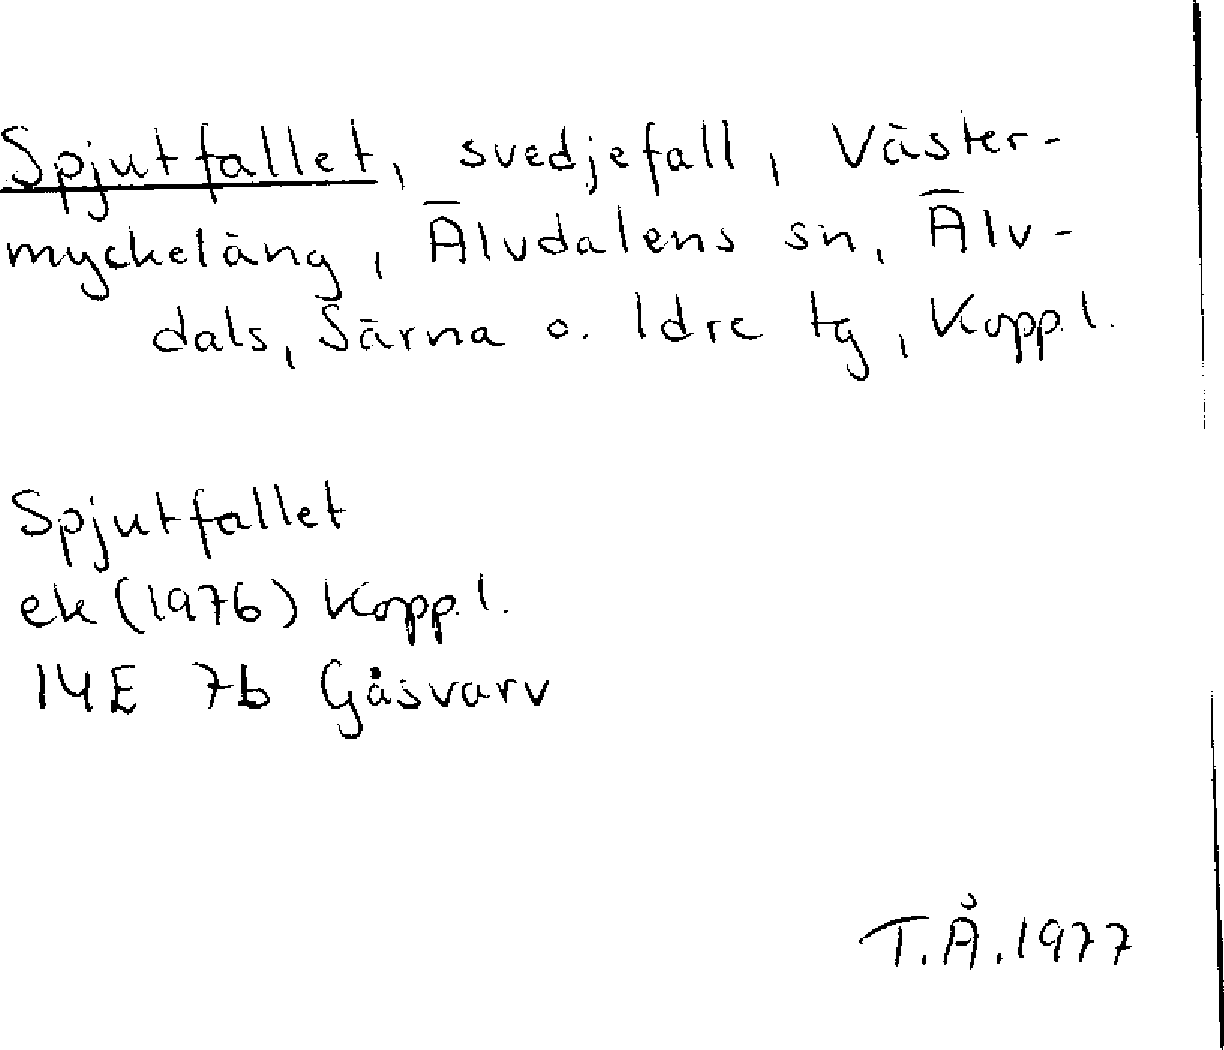 Spjutfallet, svedjefall, Väster-
myckeläng, Älvdalens sn, Älv-
dals, Särna o. Idre tg, Kopp.l.
Spjutfallet
ek (1976) Kopp.l.
14E 7b Gåsvarv
T.Å.1977